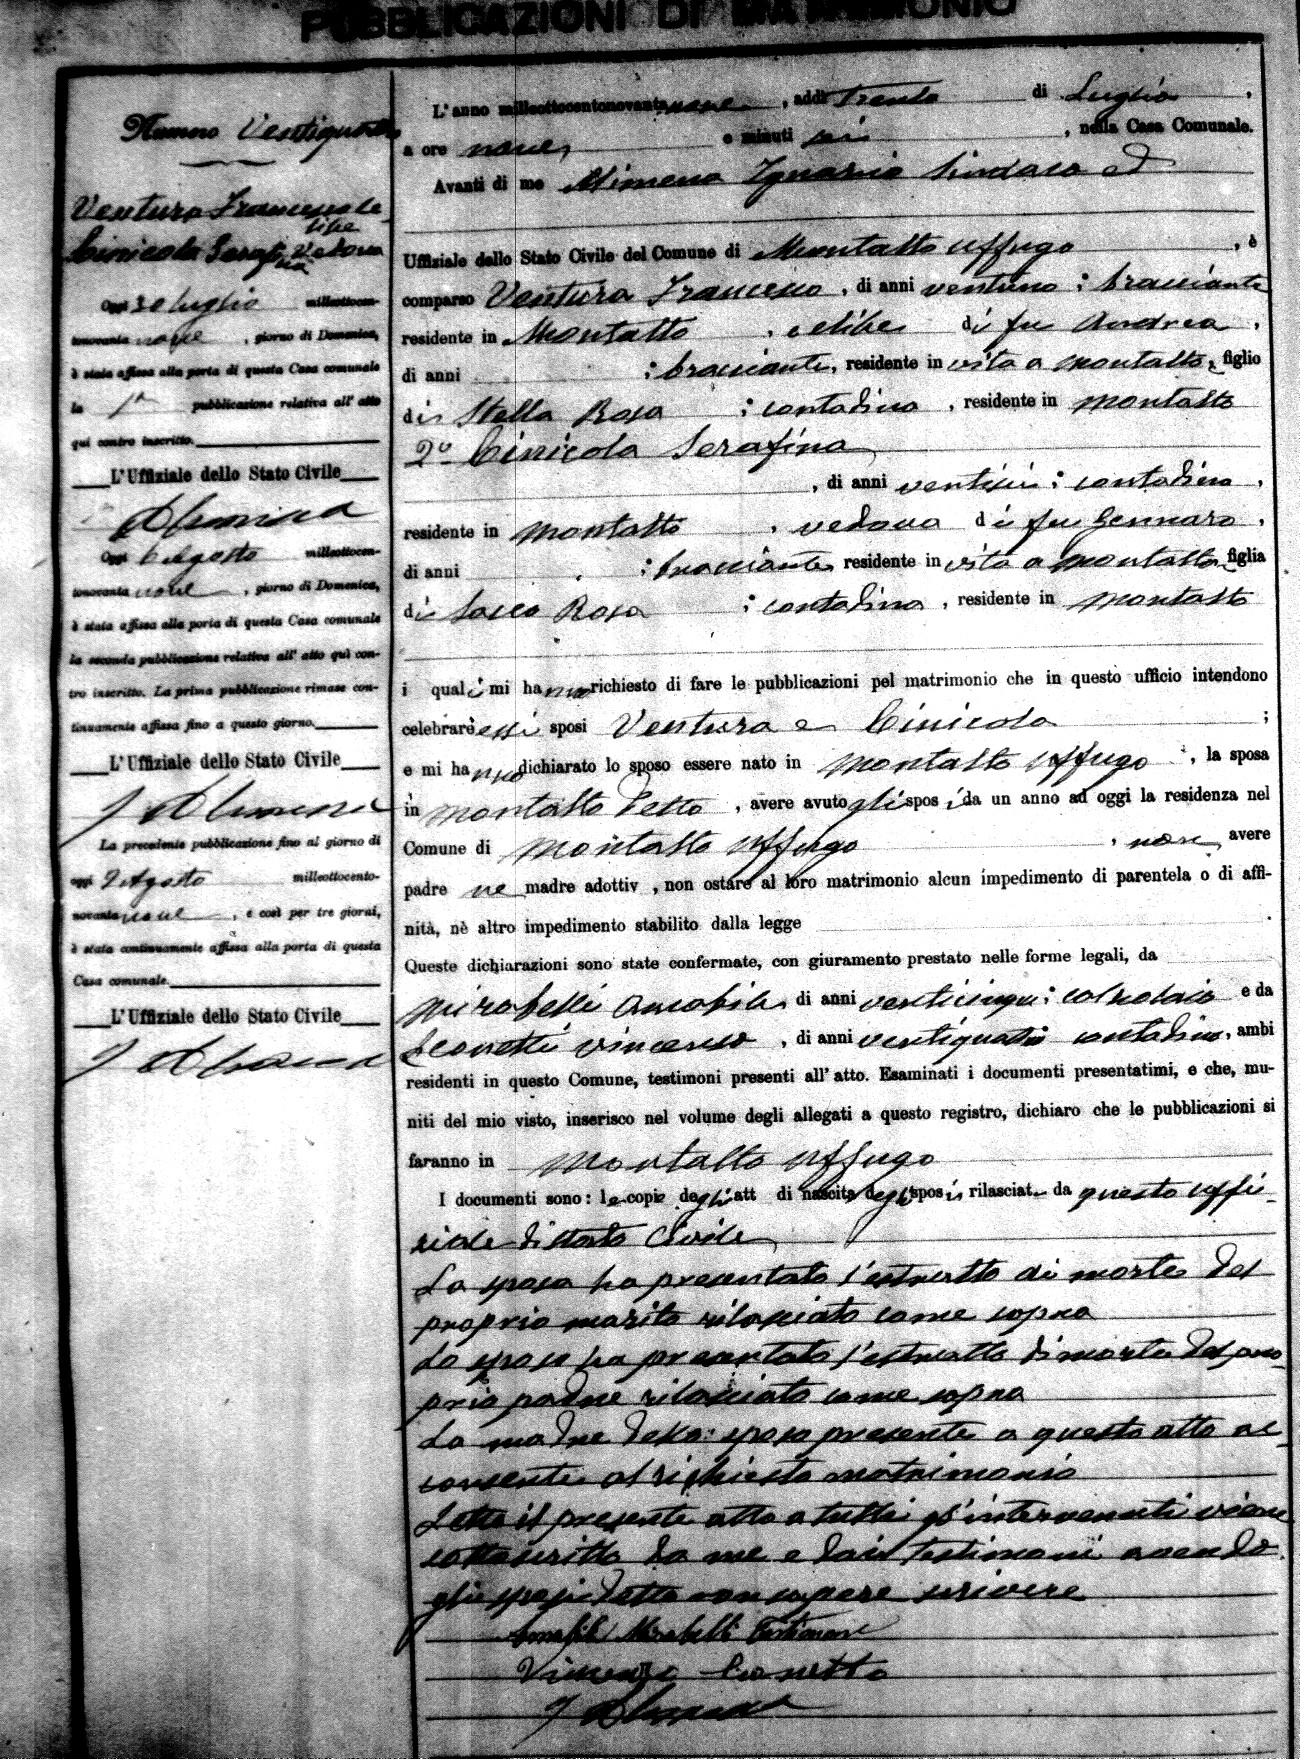 PUBBLICAZIONI DI MATRIMONIO
Numero Ventiquattro
Ventura Francesco ce
libe
Cinicola Serafi Vedova
na
Oggi 30 luglio milleottocen-
tonovanta nove, giorno di Domenica,
è stata affissa alla porta di questa Casa comunale
la 1ª pubblicazione relativa all' atto
qui contro inscritto.
L'Uffiziale dello Stato Civile
Oggi 6 Agosto milleottocen-
tonovanta nove, giorno di Domenica,
è stata affissa alla porta di questa Casa comunale
la seconda pubblicazione relativa all' atto quì con-
tro inscritto. La prima pubblicazione rimase con-
tinuamente affissa fino a questo giorno.
L'Uffiziale dello Stato Civile
La precedente pubblicazione fino al giorno di
oggi 9 Agosto milleottocento-
novanta nove, e così per tre giorni,
è stata continuamente affissa alla porta di questa
Casa comunale.
L'Uffiziale dello Stato Civile
L'anno milleottocentonovanta nove, addì trenta di Luglio,
a ore nove, e minuti sei, nella Casa Comunale.
Avanti di me Alimena Ignazio Sindaco ed
Uffiziale dello Stato Civile del Comune di Montalto Uffugo, è
comparso Ventura Francesco, di anni ventuno; bracciante
residente in Montalto, celibe di fu Andrea,
di anni ; bracciante, residente in vita a Montalto, figlio
di Stella Rosa ; contadina, residente in Montalto
2º Cinicola Serafina
, di anni ventisei; contadina,
residente in Montalto, vedova di fu Gennaro,
di anni ; bracciante residente in vita a Montalto, figlia
di Sacco Rosa ; contadina, residente in Montalto
i quali mi hanno richiesto di fare le pubblicazioni pel matrimonio che in questo ufficio intendono
celebrare essi sposi Ventura e Cinicola ;
e mi hanno dichiarato lo sposo essere nato in Montalto Uffugo, la sposa
in Montalto detto, avere avuto gli sposi da un anno ad oggi la residenza nel
Comune di Montalto Uffugo, non avere
padre ne madre adottiv , non ostare al loro matrimonio alcun impedimento di parentela o di affi-
nità, nè altro impedimento stabilito dalla legge
Queste dichiarazioni sono state confermate, con giuramento prestato nelle forme legali, da
Mirabelli Amabile, di anni venticinque; calzolaio e da
Vincenzo, di anni ventiquattro contadino, ambi
residenti in questo Comune, testimoni presenti all' atto. Esaminati i documenti presentatimi, e che, mu-
niti del mio visto, inserisco nel volume degli allegati a questo registro, dichiaro che le pubblicazioni si
faranno in Montalto Uffugo
I documenti sono: le copie degli att di nascita degli sposi rilasciate da questo uffi-
ciale di stato Civile
La sposa ha presentato l'estratto di morte del
proprio marito rilasciato come sopra
Lo sposo ha presentato l'estratto di morte del pro-
prio padre rilasciato come sopra
La madre dello sposo presente a questo atto ac-
consente al richiesto matrimonio
Letto il presente atto a tutti gl'intervenuti viene
sottoscritto da me e dai testimoni avendo
gli sposi detto non sapere scrivere
Amabile Mirabelli testimone
Vincenzo